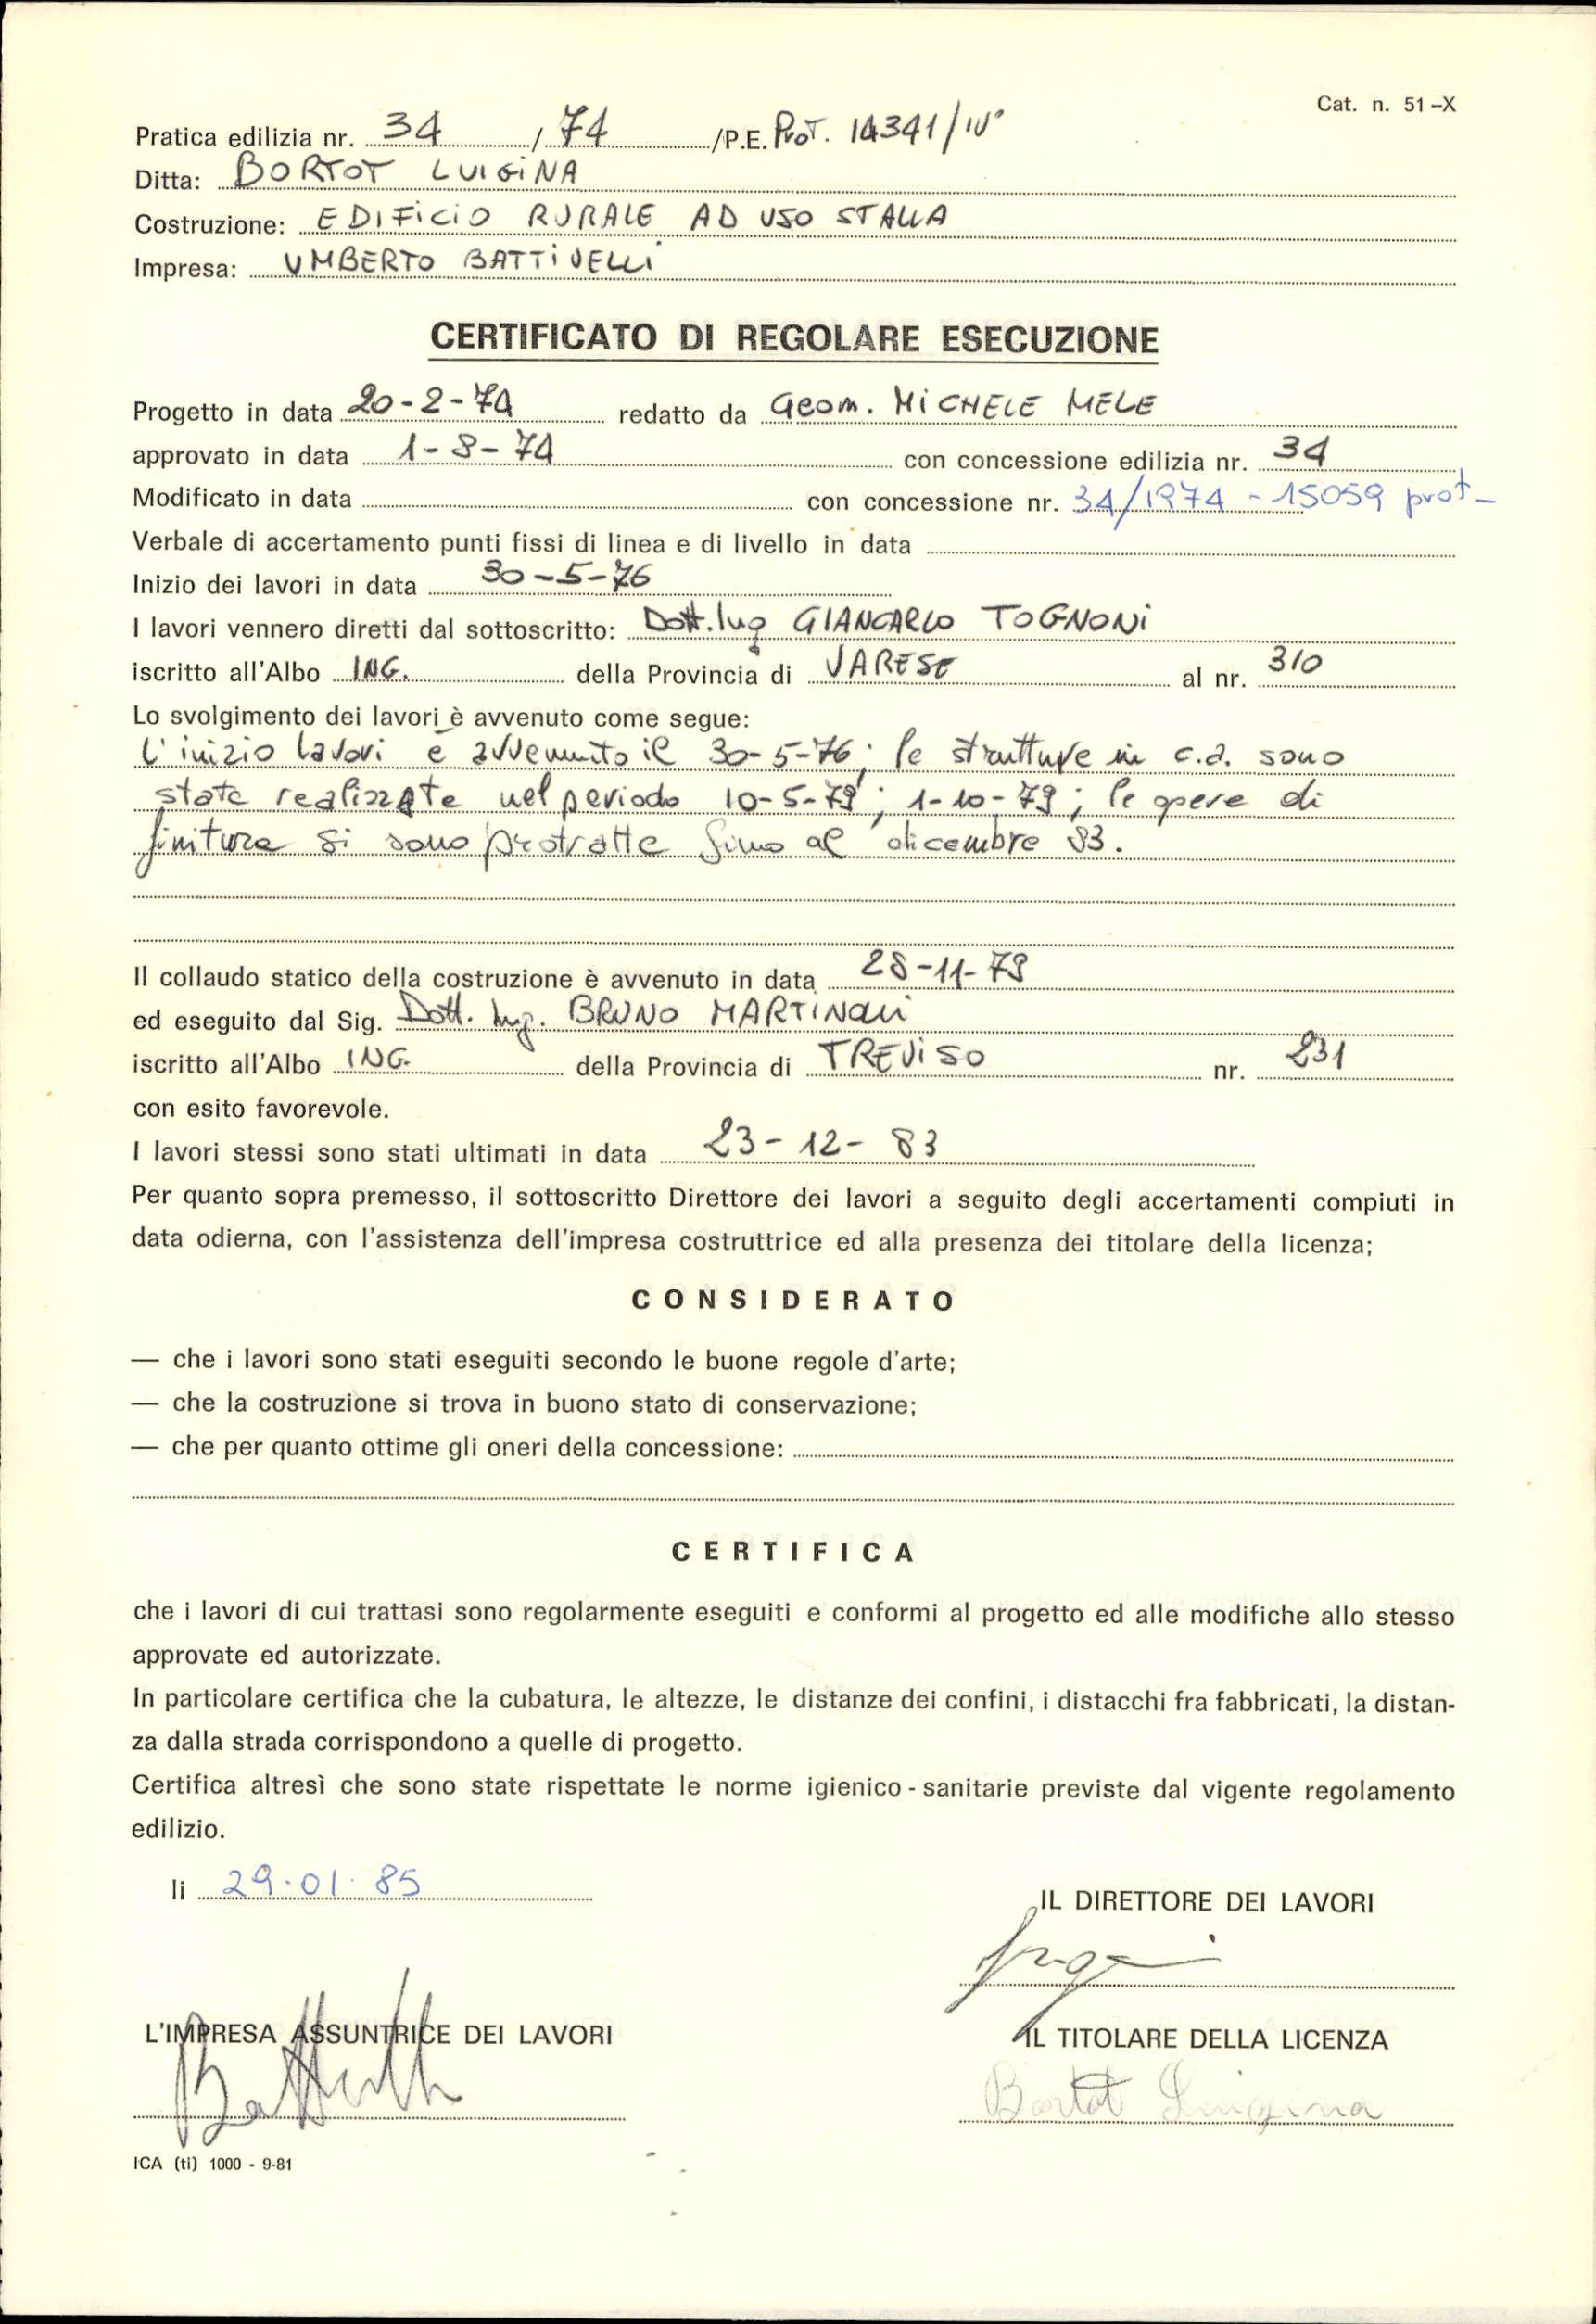 Cat. n. 51-X
Pratica edilizia nr. 34 / 74 /P.E. Prot. 14341/IV°
Ditta: BORTOT LUIGINA
Costruzione: EDIFICIO RURALE AD USO STALLA
Impresa: UMBERTO BATTIVELLI
CERTIFICATO DI REGOLARE ESECUZIONE
Progetto in data 20-2-74 redatto da Geom. MICHELE MELE
approvato in data 1-8-74 con concessione edilizia nr. 34
Modificato in data con concessione nr. 34/1974 - 15059 prot-
Verbale di accertamento punti fissi di linea e di livello in data
Inizio dei lavori in data 30-5-76
I lavori vennero diretti dal sottoscritto: Dott. Ing GIANCARLO TOGNONI
iscritto all'Albo ING. della Provincia di VARESE al nr. 310
Lo svolgimento dei lavori è avvenuto come segue:
L'inizio lavori è avvenuto il 30-5-76; le strutture in c.a. sono
state realizzate nel periodo 10-5-79; 1-10-79; le opere di
finitura si sono protratte fino al dicembre 83.
Il collaudo statico della costruzione è avvenuto in data 28-11-79
ed eseguito dal Sig. Dott. Ing. BRUNO MARTINOLLI
iscritto all'Albo ING. della Provincia di TREVISO nr. 231
con esito favorevole.
I lavori stessi sono stati ultimati in data 23-12-83
Per quanto sopra premesso, il sottoscritto Direttore dei lavori a seguito degli accertamenti compiuti in
data odierna, con l'assistenza dell'impresa costruttrice ed alla presenza dei titolare della licenza;
CONSIDERATO
— che i lavori sono stati eseguiti secondo le buone regole d'arte;
— che la costruzione si trova in buono stato di conservazione;
— che per quanto ottime gli oneri della concessione:
CERTIFICA
che i lavori di cui trattasi sono regolarmente eseguiti e conformi al progetto ed alle modifiche allo stesso
approvate ed autorizzate.
In particolare certifica che la cubatura, le altezze, le distanze dei confini, i distacchi fra fabbricati, la distan-
za dalla strada corrispondono a quelle di progetto.
Certifica altresì che sono state rispettate le norme igienico-sanitarie previste dal vigente regolamento
edilizio.
li 29.01.85
IL DIRETTORE DEI LAVORI
L'IMPRESA ASSUNTRICE DEI LAVORI
IL TITOLARE DELLA LICENZA
Bortot Luigina
ICA (ti) 1000 - 9-81